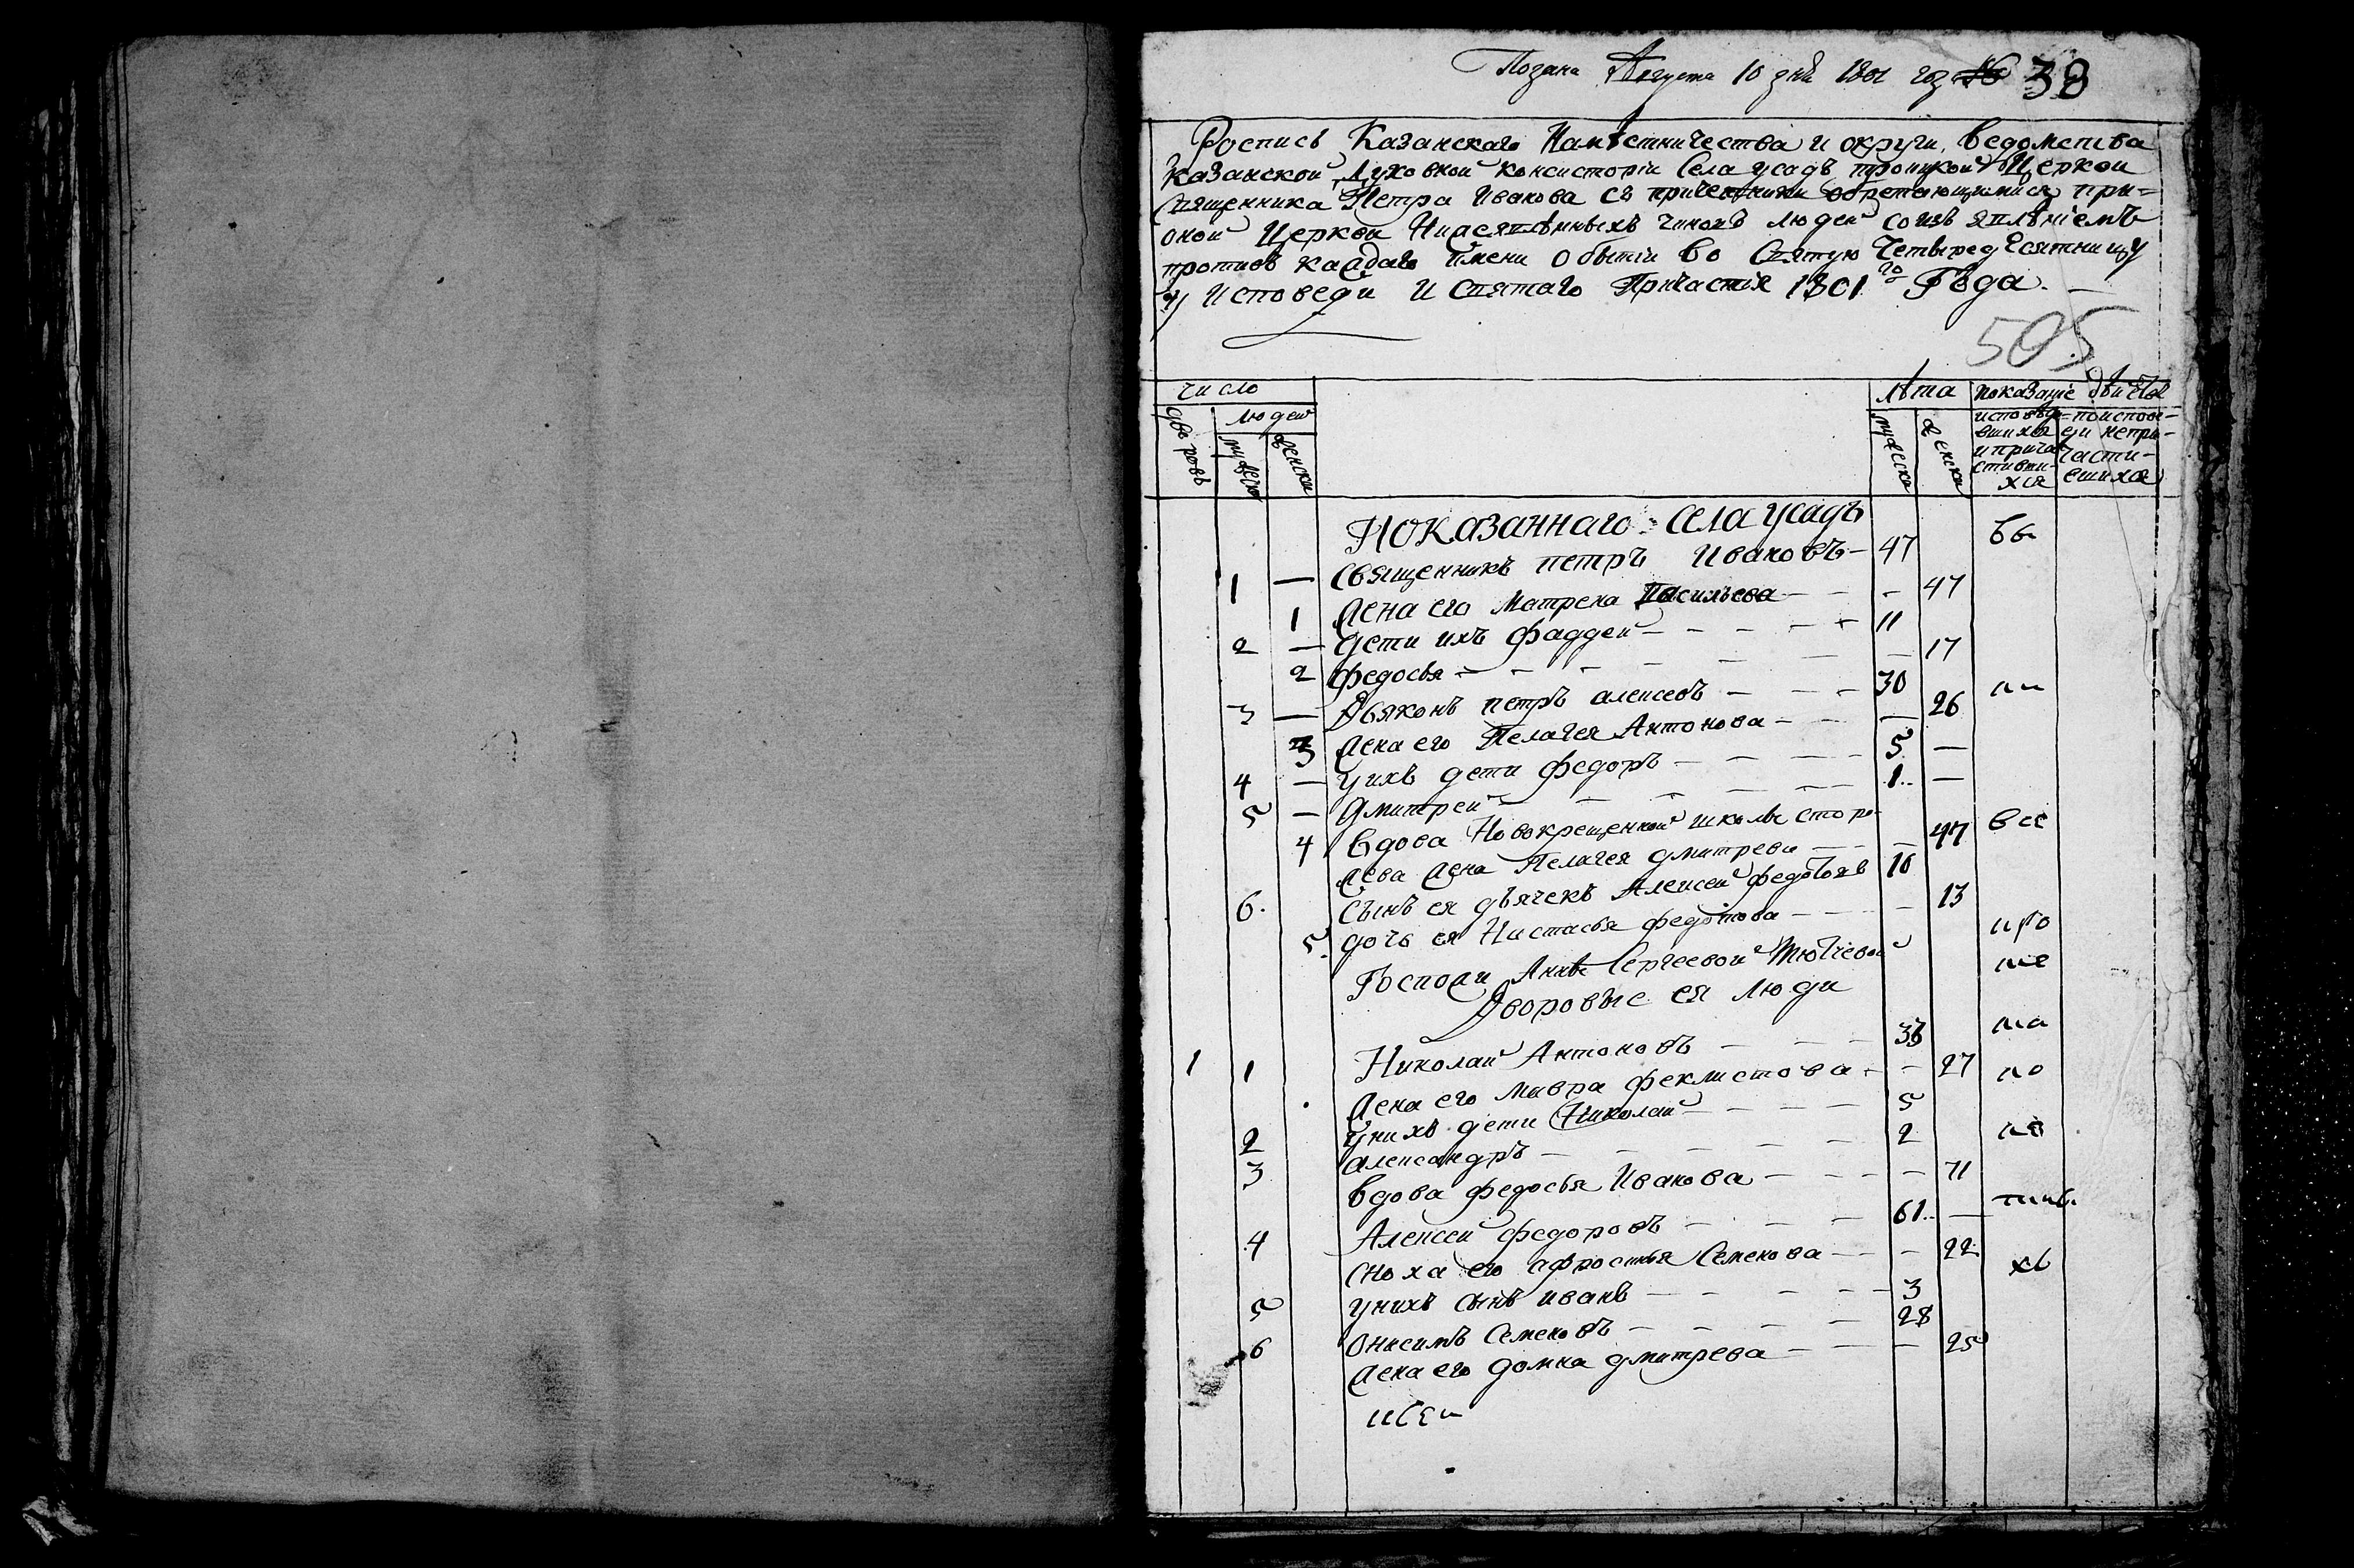 Подана Августа 10 дня 1801 год 38
Роспись Казанскаго Намѣстничества и округи, ведомства
Казанской Духовной консисторіи Села усадъ троицкой Церкви
священника Петра Иванова съ причетники обретающимися при-
оной Церкви Нижеявлѣнныхъ чиновъ людей со изъявлѣніемъ
противъ каждаго имени о бытіи во Святую Четыредесятницу
у Исповеди и Святаго Причастія 1801 го Года.
505
число лѣта показаніе
дворовъ людей мужеска женска исповѣда- поиспов-
мужеск женски вшихся еди непри-
и прича- части-
стивши- вшихся
хся
Показаннаго Села усадъ
1 — Священникъ петръ Ивановъ — 47
1 Жена его Матрена Васильева — 47
2 — Дети ихъ фаддей — 11
2 федосья — 17
3 — Дьяконъ петръ алексеевъ — 30
3 Жена его Пелагея Антонова — 26
4 — у ихъ дети федоръ — 5 —
5 — Дмитрей — 1 —
4 вдова Новокрещенной школы сторо- 47 все
жева жена Пелагея дмитрева —
6. Сынъ ея дьячекъ Алексей федотовъ
5. дочь ея Настасья федотова — 13
Госпожи Аннѣ Сергеевой Тютчевой
Дворовые ея люди
1 1 Николай Антоновъ —
Жена его Мавра феклистова — 27
2 у нихъ дети Николай — 5
3 александръ — 2
вдова федосья Иванова — 71
4 Алексей федоровъ — 61 —
сноха его афросинья Семенова — 22
5 у нихъ сынъ иванъ — 3
6 Онисимъ Семеновъ — 28
Жена его домна дмитрева — 25